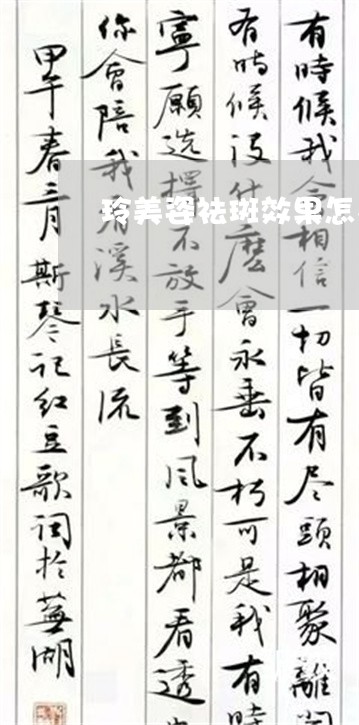 玲美姿祛斑效果怎
有時候我会相信一切皆有尽頭相聚離
有時候没什麽會永垂不朽可是我有時
寧願选擇不放手等到风景都看透
你會陪我看溪水長流
甲午春三月斯琴记红豆歌詞於蕪湖